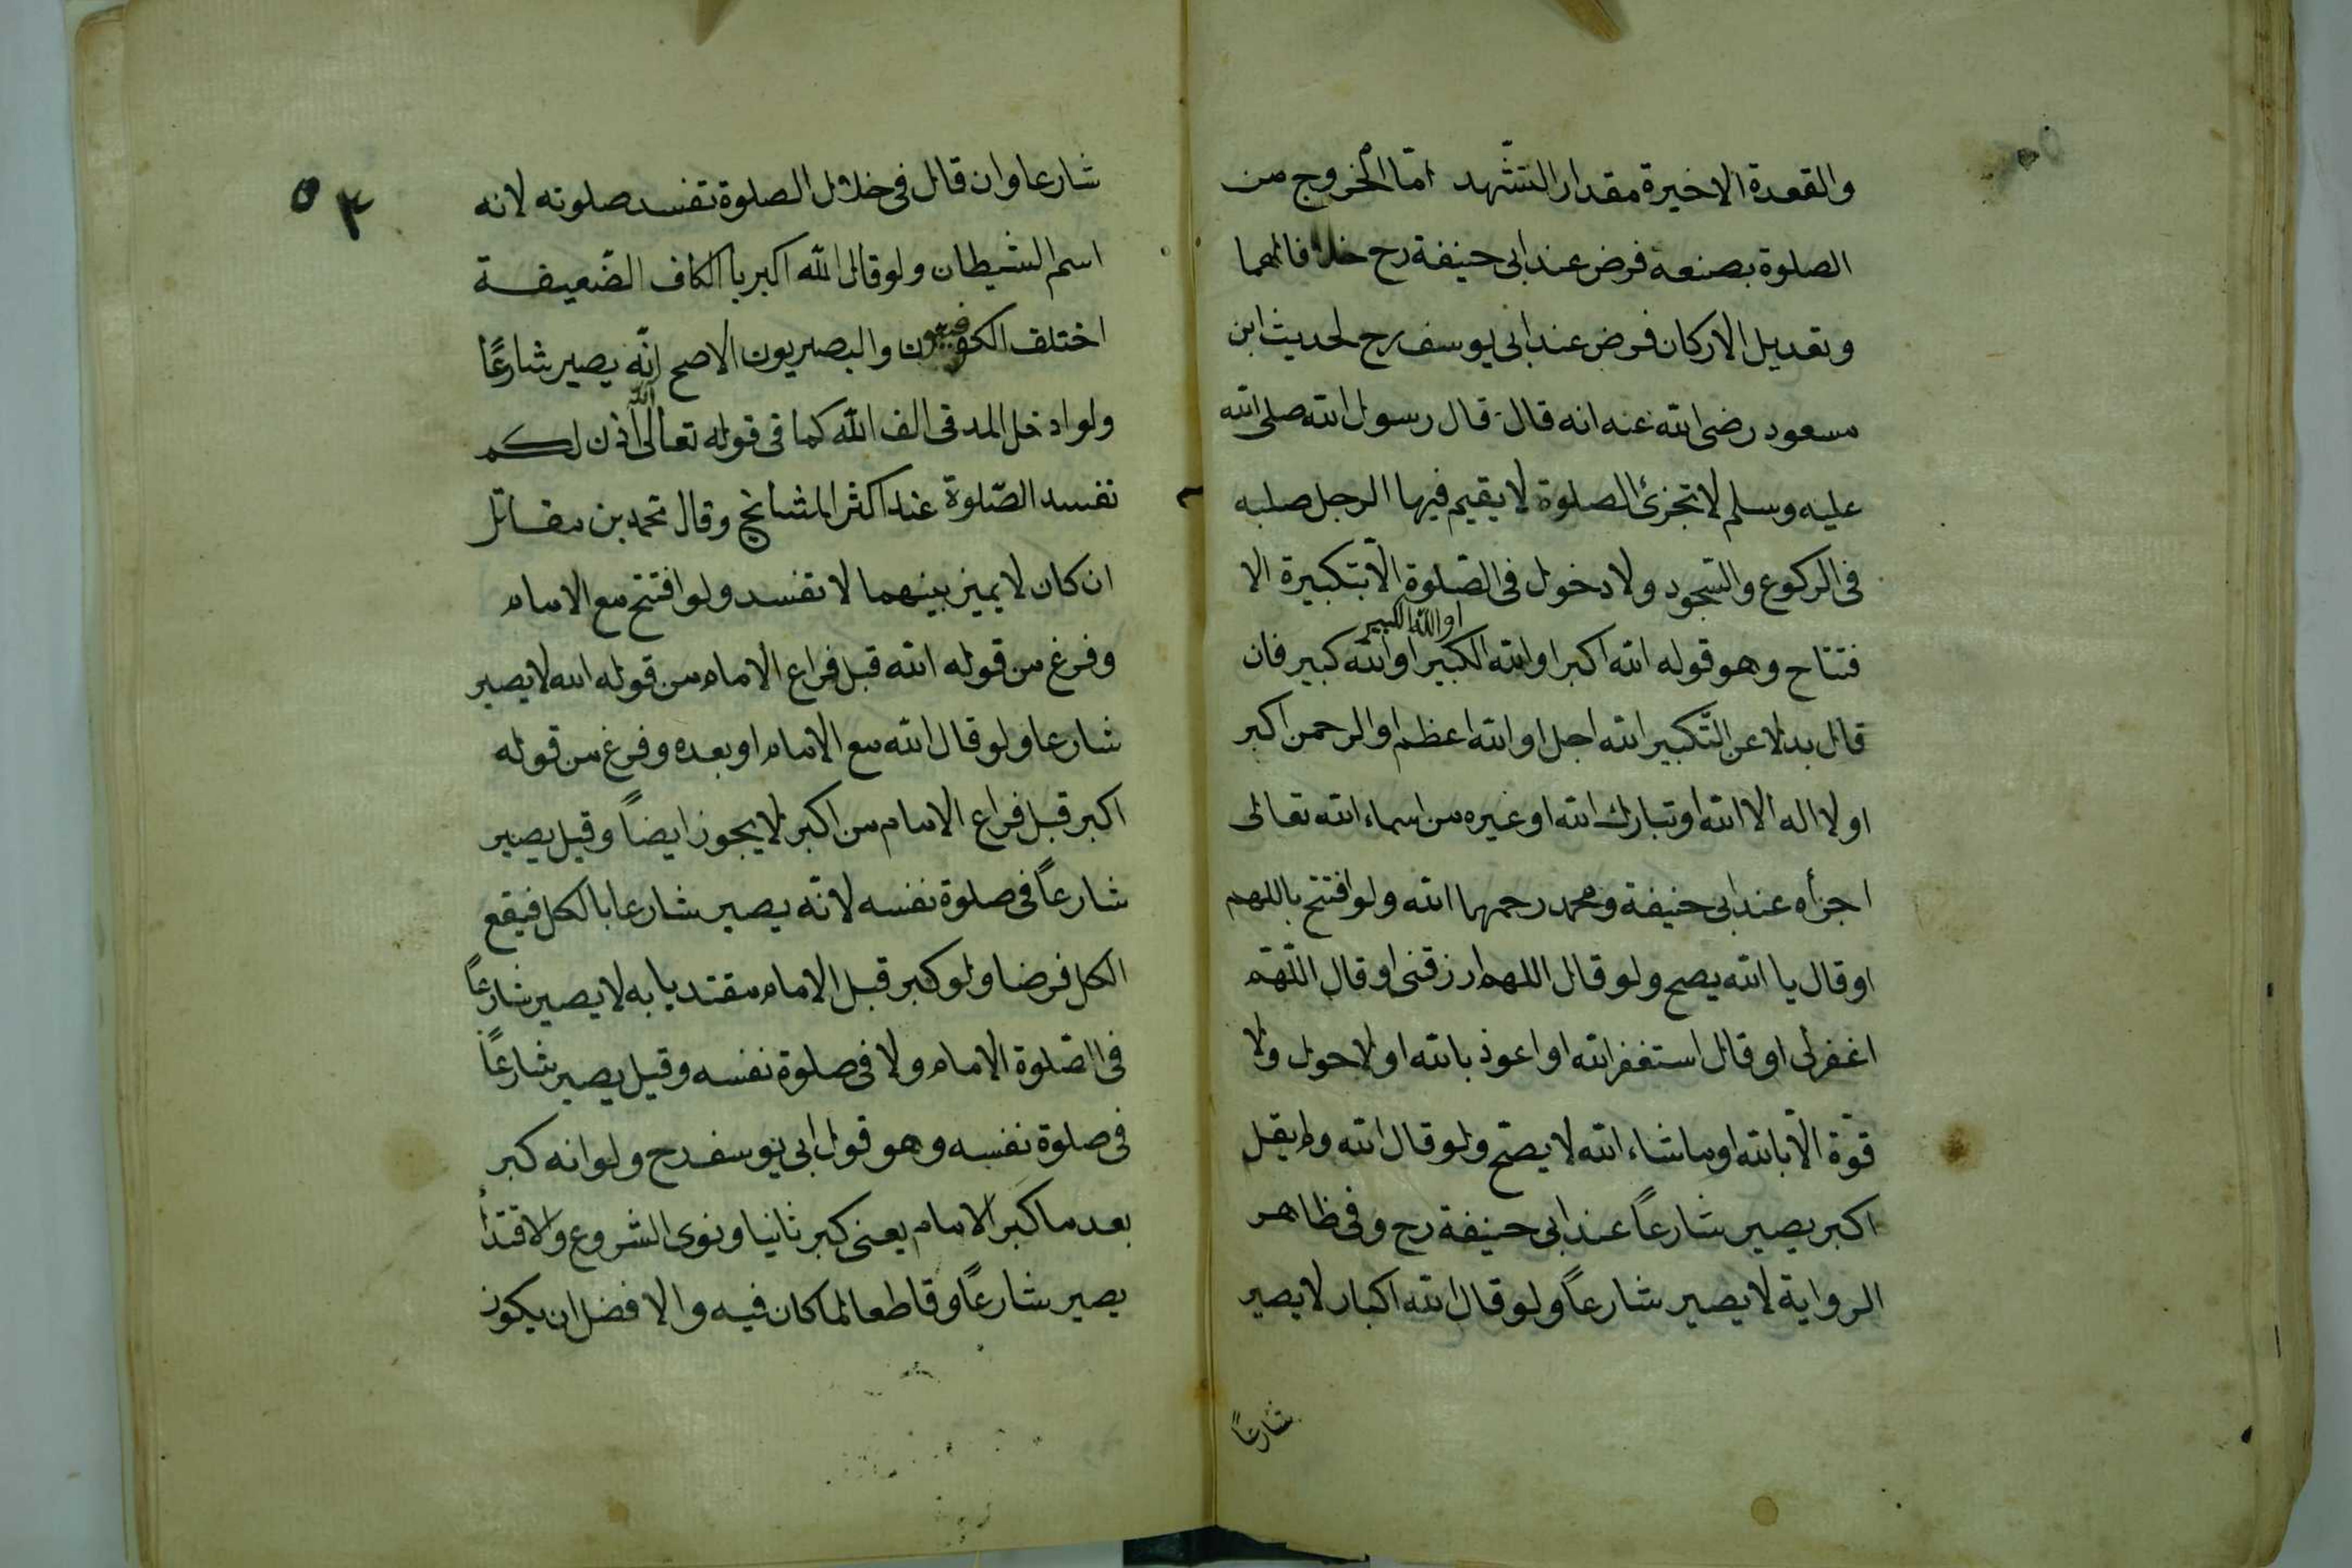 والقعدة الاخيرة مقدار التشهد امّا الخروج من
الصلوة بصنعه فرض عند ابى حنيفة رح خلافا لهما
وتعديل الاركان فرض عند ابى يوسف رح لحديث ابن
مسعود رضى الله عنه انه قال قال رسول الله صلى الله
عليه وسلم لا تجزئ الصلوة لا يقيم فيها الرجل صلبه
فى الركوع والسّجود ولا دخول فى الصّلوة الّا بتكبيرة الا
او الله الكبير
فتتاح وهو قوله الله اكبر او الله الكبير او الله كبير فان
قال بدلا عن التّكبير الله اجل او الله اعظم او الرحمن اكبر
او لا اله الا الله او تبارك الله او غيره من اسماء الله تعالى
اجزأه عند ابى حنيفة ومحمد رحمهما الله ولو افتتح باللهم
او قال يا الله يصح ولو قال اللهم ارزقنى او قال اللّهمّ
اغفرلى او قال استغفر الله او اعوذ بالله او لا حول ولا
قوّة الّا بالله او ماشاء الله لا يصحّ ولو قال الله ولم يقل
اكبر يصير شارعاً عند ابى حنيفة رح وفى ظاهر
الرواية لا يصير شارعاً ولو قال الله اكبار لا يصير
شارعاً
٥٣
شارعا وان قال فى خلال الصلوة تفسد صلوته لانه
اسم الشيطان ولو قال الله اكبر با الكاف الضّعيفة
اختلف الكوفيون والبصريون الاصح انّه يصير شارعًا
ولو ادخل المد فى الف الله كما فى قوله تعالى آلله اذن لكم
تفسد الصّلوة عند اكثر المشائخ وقال محمد بن مقاتل
ان كان لا يميز بينهما لا تفسد ولو افتتح مع الامام
وفرغ من قوله الله قبل فراع الامام من قوله الله لا يصير
شارعا ولو قال الله مع الامام او بعده وفرغ من قوله
اكبر قبل فراع الامام من اكبر لا يجوز ايضاً وقيل يصير
شارعاً فى صلوة نفسه لانّه يصير شارعا بالكل فيقع
الكل فرضا ولو كبر قبل الامام مقتديا به لا يصير شارعاً
فى الصّلوة الامام ولا فى صلوة نفسه وقيل يصير شارعاً
فى صلوة نفسه وهو قول ابى يوسف رح ولو انه كبر
بعد ما كبر الامام يعنى كبر ثانيا ونوى الشروع والاقتدأ
يصير شارعاً وقاطعا لما كان فيه والافضل ان يكون